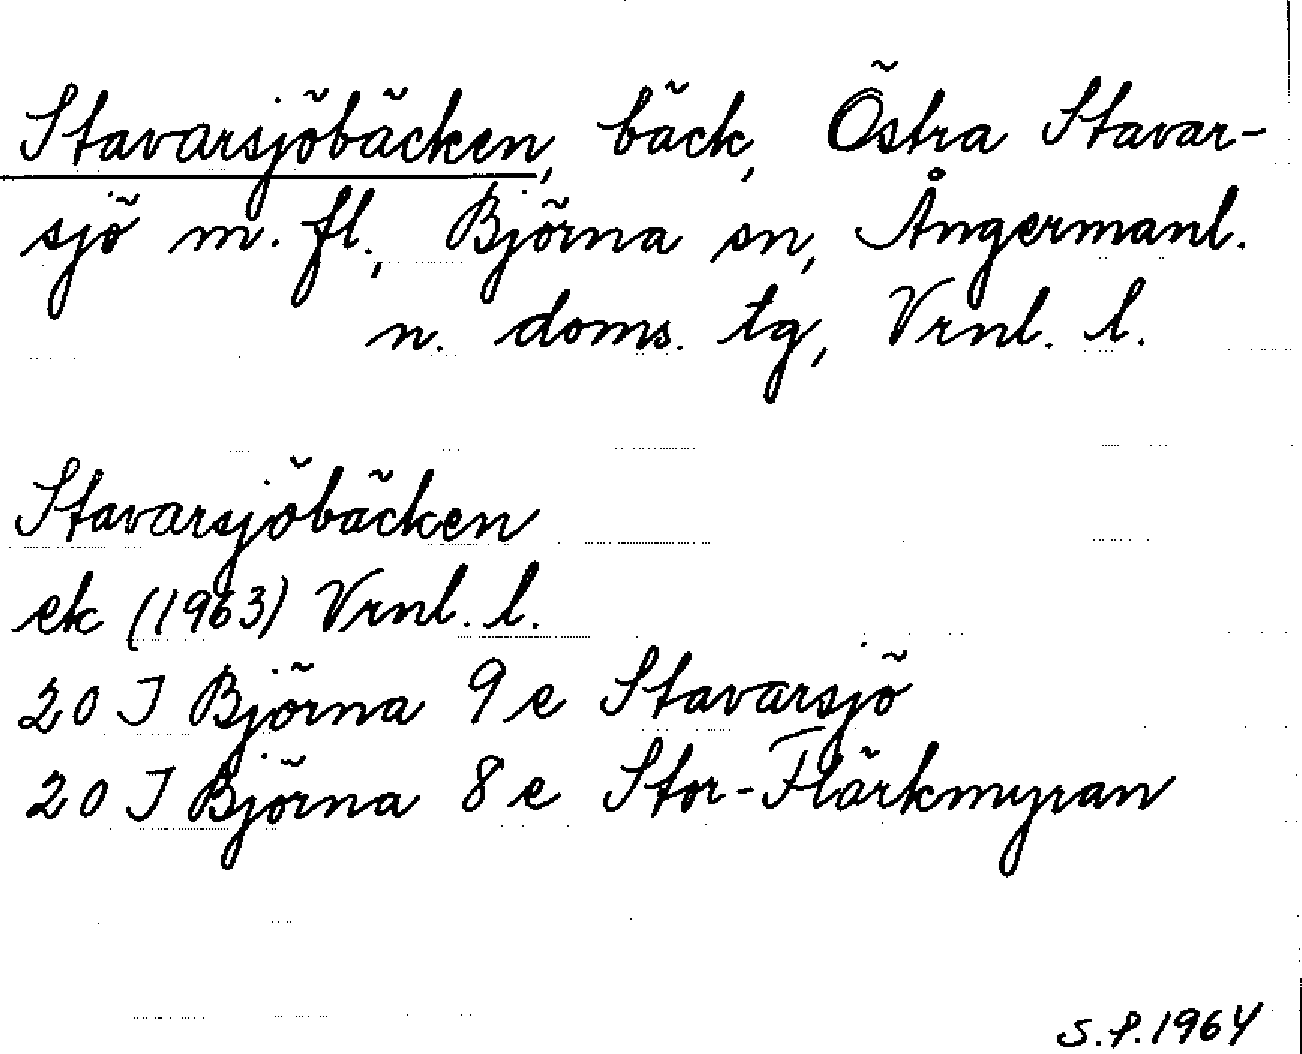 Stavarsjöbäcken, bäck, Östra Stavar-
sjö m. fl., Björna sn, Ångermanl.
n. doms. tg, Vrnl. l.
Stavarsjöbäcken
ek (1963) Vrnl. l.
20 J Björna 9 e Stavarsjö
20 J Björna 8 e Stor-Flärkmyran
S.P. 1964